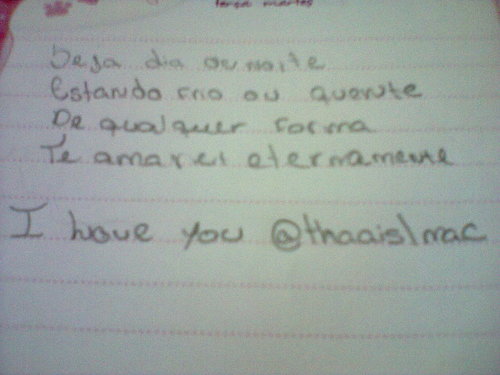 terça martes
Seja dia ou noite
Estando frio ou quente
De qualquer forma
Te amarei eternamente
I love you @thaaislmac